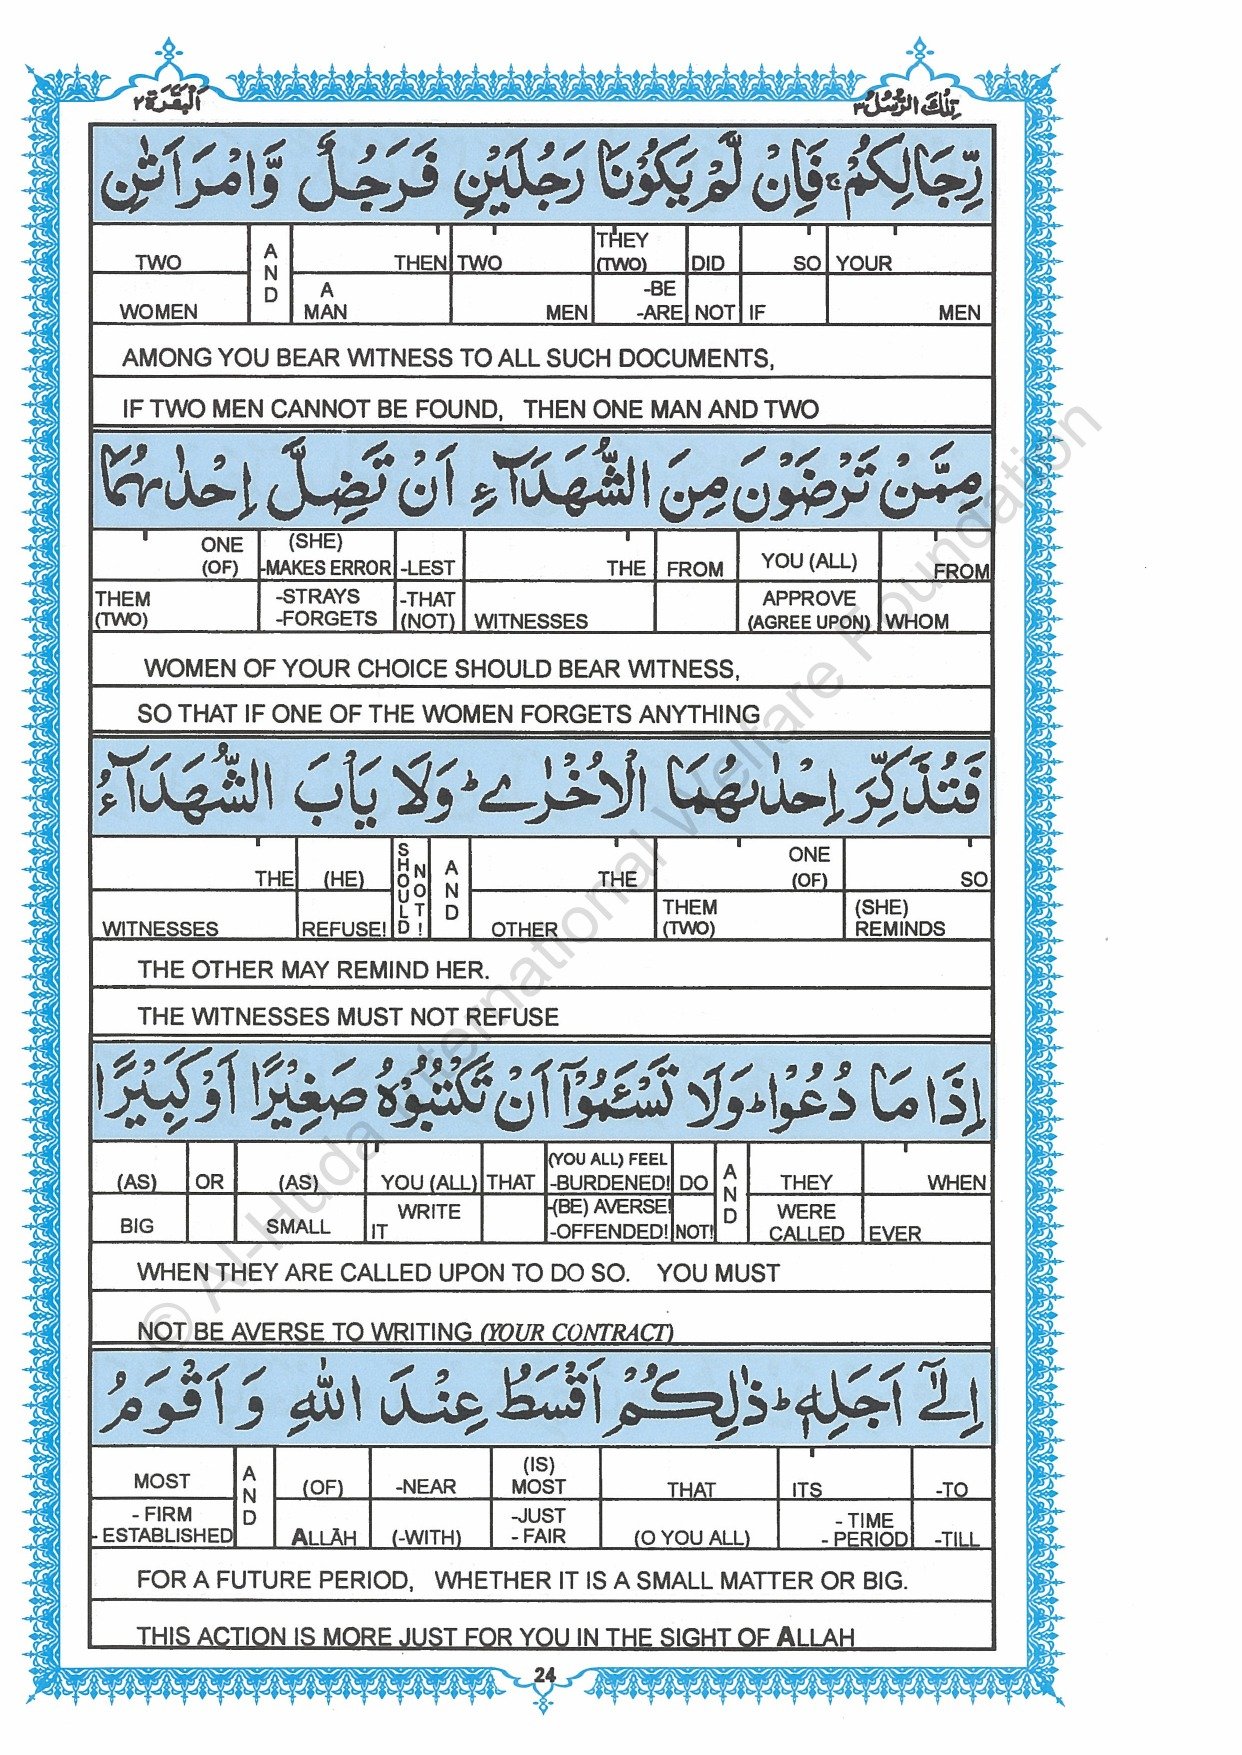 البقرة ٢ تلك الرسل ٣
رِّجَالِكُمْ ۚ فَاِنْ لَّمْ يَكُوْنَا رَجُلَيْنِ فَرَجُلٌ وَّامْرَاَتٰنِ
TWO AND THEN TWO THEY (TWO) DID SO YOUR
WOMEN A MAN MEN -BE -ARE NOT IF MEN
AMONG YOU BEAR WITNESS TO ALL SUCH DOCUMENTS,
IF TWO MEN CANNOT BE FOUND, THEN ONE MAN AND TWO
مِمَّنْ تَرْضَوْنَ مِنَ الشُّهَدَآءِ اَنْ تَضِلَّ اِحْدٰىهُمَا
ONE (OF) (SHE) -MAKES ERROR -LEST THE FROM YOU (ALL) FROM
THEM (TWO) -STRAYS -FORGETS -THAT (NOT) WITNESSES APPROVE (AGREE UPON) WHOM
WOMEN OF YOUR CHOICE SHOULD BEAR WITNESS,
SO THAT IF ONE OF THE WOMEN FORGETS ANYTHING
فَتُذَكِّرَ اِحْدٰىهُمَا الْاُخْرٰى ؕ وَلَا يَاْبَ الشُّهَدَآءُ
THE (HE) SHOULD NOT! AND THE ONE (OF) SO
WITNESSES REFUSE! OTHER THEM (TWO) (SHE) REMINDS
THE OTHER MAY REMIND HER.
THE WITNESSES MUST NOT REFUSE
اِذَا مَا دُعُوْا ؕ وَلَا تَسْـَٔمُوْۤا اَنْ تَكْتُبُوْهُ صَغِيْرًا اَوْ كَبِيْرًا
(AS) OR (AS) YOU (ALL) THAT (YOU ALL) FEEL -BURDENED! DO AND THEY WHEN
BIG SMALL WRITE IT -(BE) AVERSE! -OFFENDED! NOT! WERE CALLED EVER
WHEN THEY ARE CALLED UPON TO DO SO. YOU MUST
NOT BE AVERSE TO WRITING (YOUR CONTRACT)
اِلٰۤى اَجَلِهٖ ؕ ذٰلِكُمْ اَقْسَطُ عِنْدَ اللّٰهِ وَاَقْوَمُ
MOST AND (OF) -NEAR (IS) MOST THAT ITS -TO
- FIRM - ESTABLISHED ALLĀH (-WITH) -JUST - FAIR (O YOU ALL) - TIME - PERIOD -TILL
FOR A FUTURE PERIOD, WHETHER IT IS A SMALL MATTER OR BIG.
THIS ACTION IS MORE JUST FOR YOU IN THE SIGHT OF ALLAH
24
© Al-Huda International Welfare Foundation